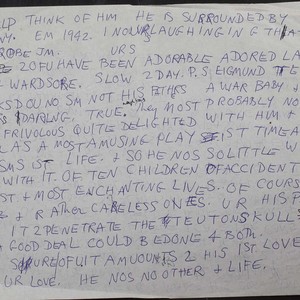 LP THINK OF HIM HE IS SURROUNDED BY
NY. EM 1942. I NO UR LAUGHING IN G THA
ROBE JM. URS
2 OF U HAVE BEEN ADORABLE ADORED LA
WARDSORE. SLOW 2 DAY. P.S EIGMUND THE
KS DO U NO SM NOT HIS FATHRS A WAR BABY &
S DARLING, TRUE. THEY MOST PROBABLY NO
FRIVOLOUS QUITE DELIGHTED WITH HIM &
R AS A MOST AMUSING PLAY IST TIME A
SMS IST LIFE. & SO HE NOS SO LITTLE W
WITH IT. OF TEN CHILDREN OF ACCIDENT
ST & MOST ENCHANTING LIVES. OF COURS
E & RATHER CARELESS ONES. UR HIS P
IT 2 PENETRATE THE TEUTON SKULL
GOOD DEAL COULD BE DONE 4 BOTH.
OF U IT AMUOUNTS 2 HIS IST LOVE
UR LOVE. HE NOS NO OTHER & LIFE.